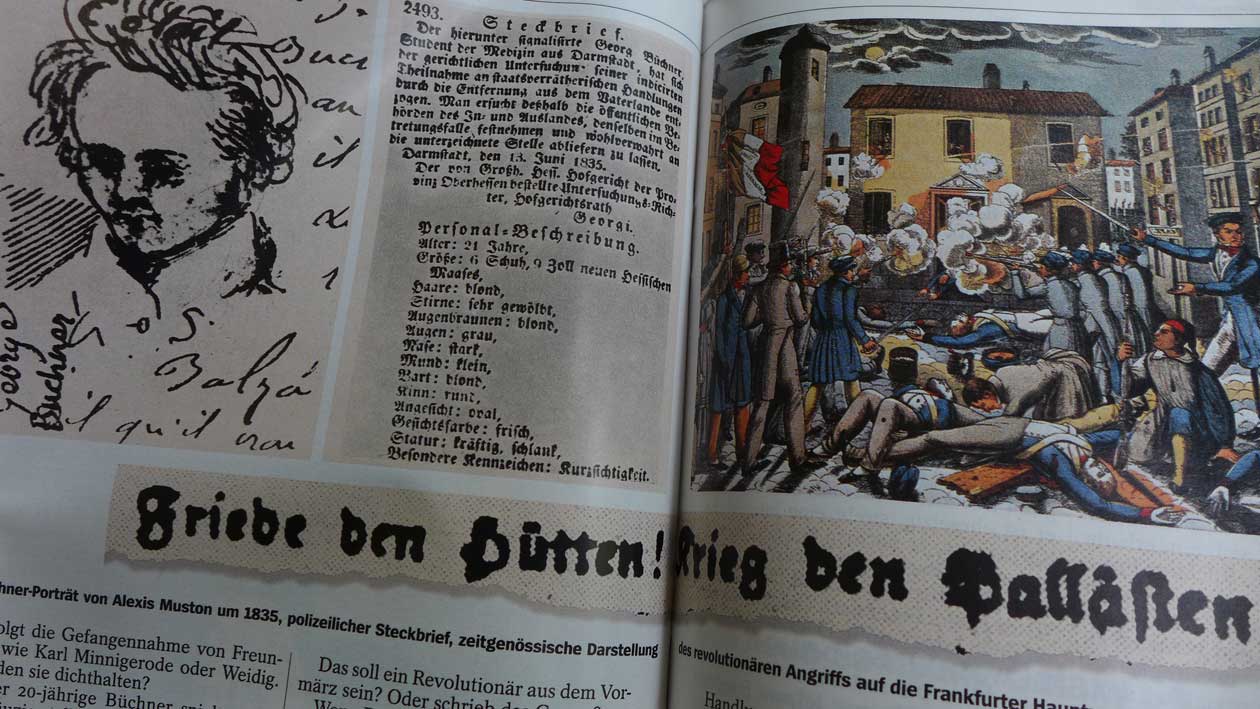 an
il
George
Buchner
S.
Balzá
il qu'il von
2493.
Steckbrief.
Der hierunter signalisirte Georg Büchner,
Student der Medizin aus Darmstadt, hat sich
der gerichtlichen Untersuchung seiner indicirten
Theilnahme an staatsverrätherischen Handlungen
durch die Entfernung aus dem Vaterlande ent-
zogen. Man ersucht deßhalb die öffentlichen Be-
hörden des In- und Auslandes, denselben im Be-
tretungsfalle festnehmen und wohlverwahrt an
die unterzeichnete Stelle abliefern zu lassen.
Darmstadt, den 13. Juni 1835.
Der von Großh. Hess. Hofgericht der Pro-
vinz Oberhessen bestellte Untersuchungs-Rich-
ter, Hofgerichtsrath
Georgi.
Personal-Beschreibung.
Alter: 21 Jahre,
Größe: 6 Schuh, 9 Zoll neuen Hessischen
Maases,
Haare: blond,
Stirne: sehr gewölbt,
Augenbraunen: blond,
Augen: grau,
Nase: stark,
Mund: klein,
Bart: blond,
Kinn: rund,
Angesicht: oval,
Gesichtsfarbe: frisch,
Statur: kräftig, schlank,
Besondere Kennzeichen: Kurzsichtigkeit.
Friede den Hütten! Krieg den Pallästen
hner-Porträt von Alexis Muston um 1835, polizeilicher Steckbrief, zeitgenössische Darstellung des revolutionären Angriffs auf die Frankfurter Haupt
olgt die Gefangennahme von Freun-
wie Karl Minnigerode oder Weidig.
den sie dichthalten?
er 20-jährige Büchner
Das soll ein Revolutionär aus dem Vor-
märz sein? Oder schrieb